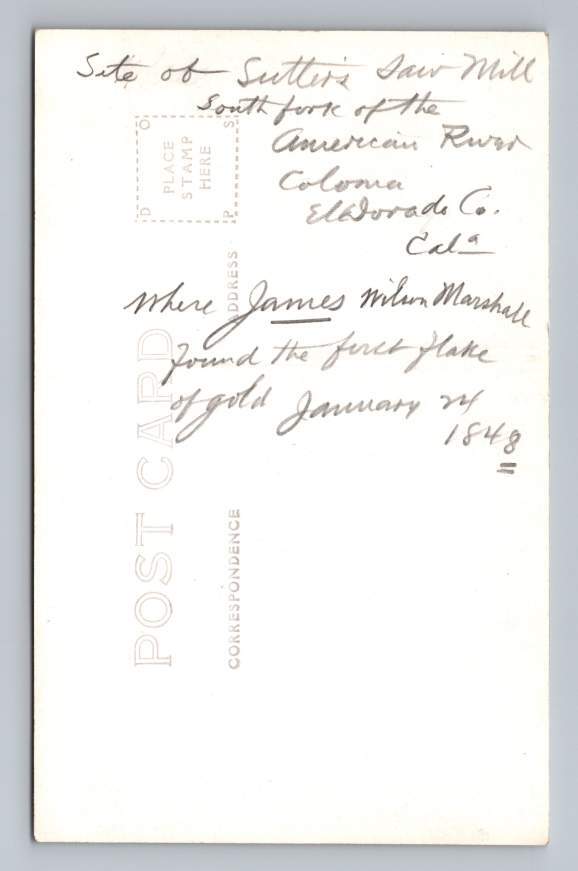 Site of Sutter's Saw Mill
South fork of the
American River
Coloma
El Dorado Co.
Cala
Where James Wilson Marshall
found the first flake
of gold January 24
1848
PLACE
STAMP
HERE
D O
P S
ADDRESS
POST CARD
CORRESPONDENCE